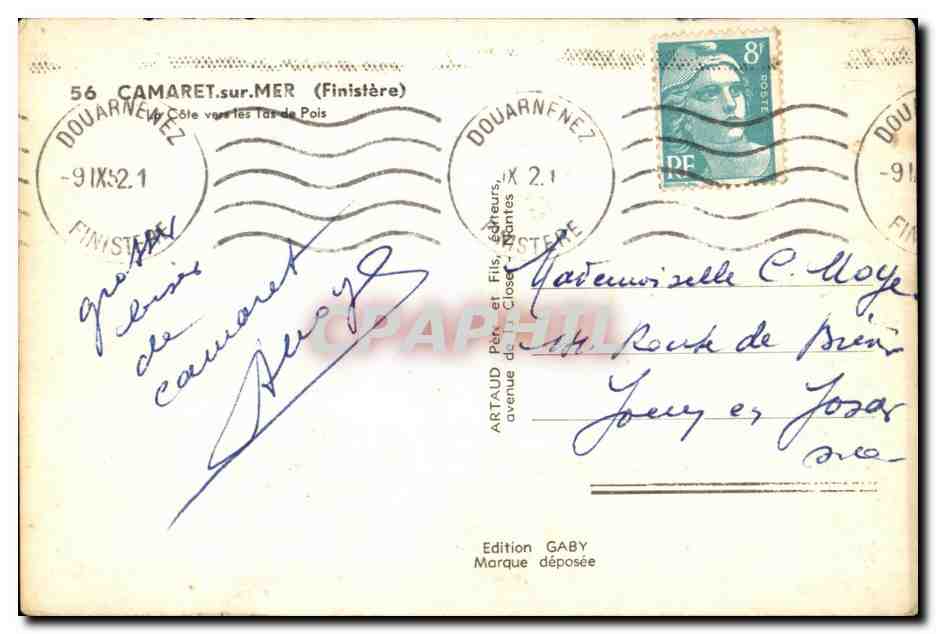 56 CAMARET.sur.MER (Finistère)
La Côte vers les Tas de Pois
DOUARNENEZ
-9 IX 52.1
FINISTERE
DOUARNENEZ
IX 2.1
NISTERE
DOU
-9 I
FIN
8F
POSTE
RF
grosses
bises
de
camaret
ARTAUD Père et Fils, éditeurs,
avenue de la Close - Nantes
CPAPHIL
Mademoiselle C. Moye
Route de Bièvr
Jouy en Josas
Edition GABY
Marque déposée